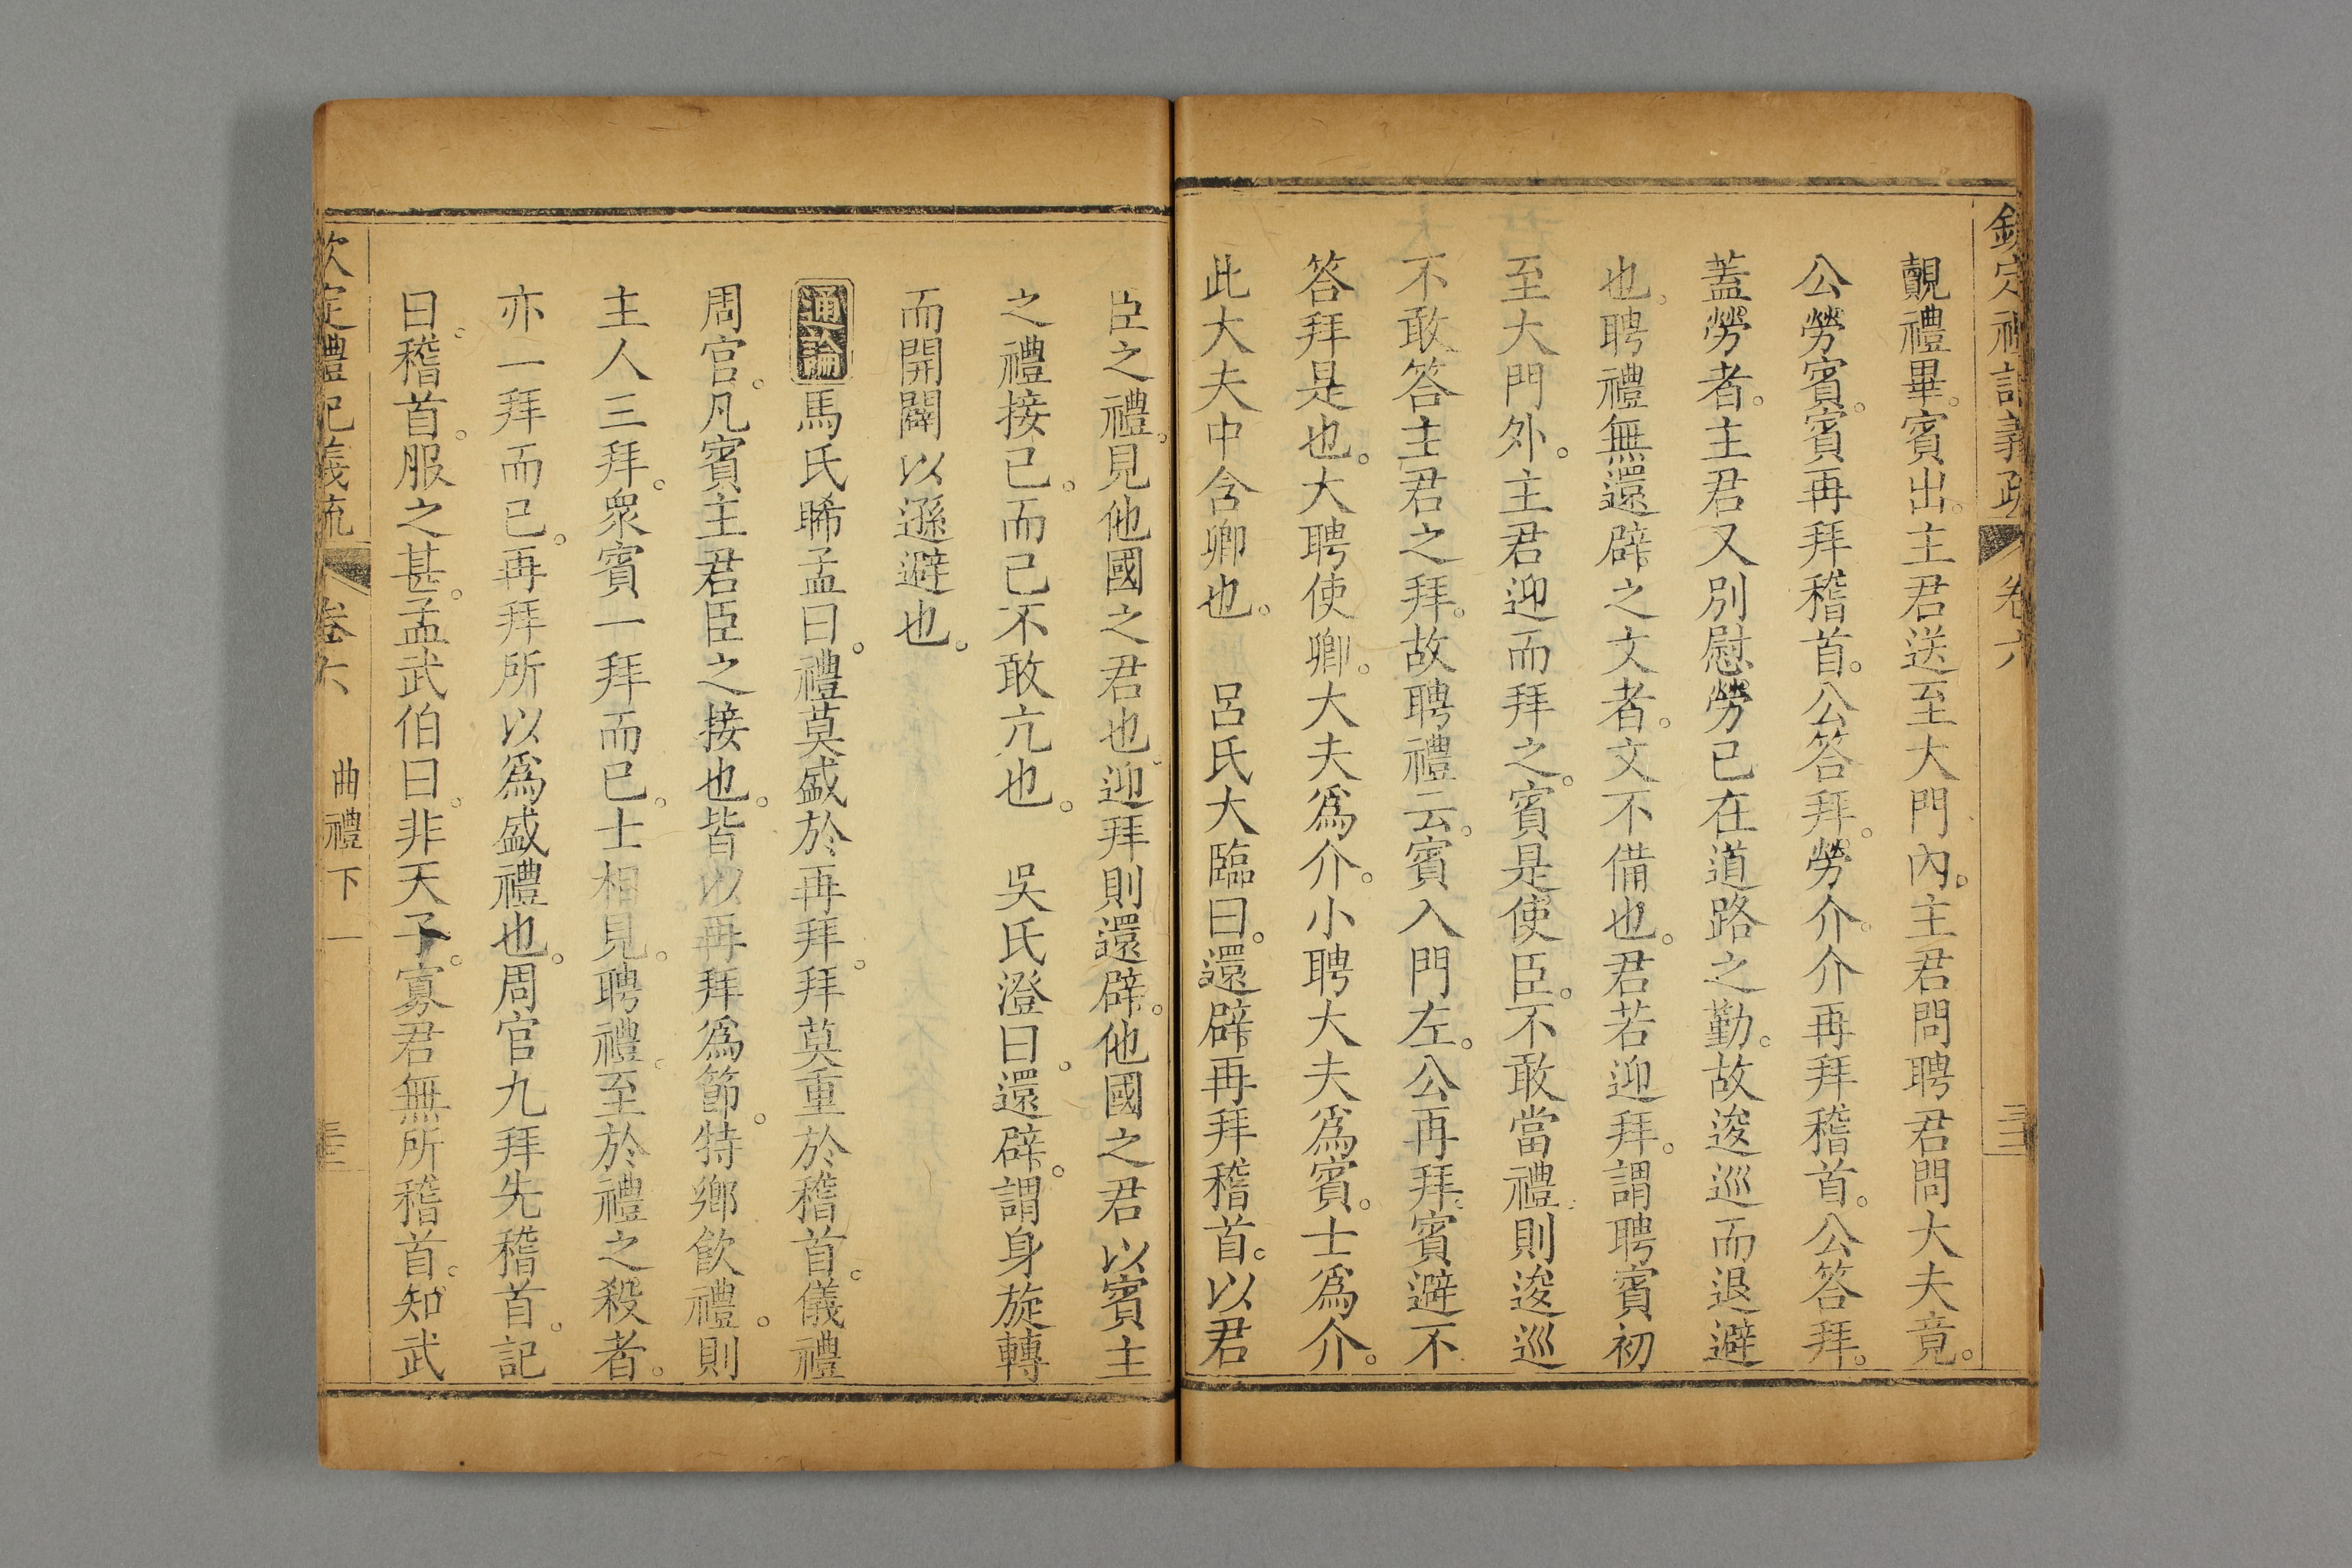 欽定禮記義疏 卷六
覿禮畢。賓出。主君送至大門內。主君問聘君問大夫竟。
公勞賓。賓再拜稽首。公答拜。勞介。介再拜稽首。公答拜。
蓋勞者。主君又別慰勞已在道路之勤。故逡巡而退避
也。聘禮無還辟之文者。文不備也。君若迎拜。謂聘賓初
至大門外。主君迎而拜之。賓是使臣。不敢當禮。則逡巡
不敢答主君之拜。故聘禮云。賓入門左。公再拜。賓避不
答拜是也。大聘使卿。大夫為介。小聘大夫為賓。士為介。
此大夫中含卿也。 呂氏大臨曰。還辟再拜稽首。以君
臣之禮。見他國之君也。迎拜則還辟。他國之君以賓主
之禮接已。而已不敢亢也。 吳氏澄曰。還辟。謂身旋轉
而開闢以遜避也。
通論馬氏睎孟曰。禮莫盛於再拜。拜莫重於稽首。儀禮
周官。凡賓主君臣之接也。皆以再拜為節。特鄉飲禮。則
主人三拜。眾賓一拜而已。士相見。聘禮。至於禮之殺者。
亦一拜而已。再拜所以為盛禮也。周官九拜先稽首。記
曰。稽首。服之甚。孟武伯曰。非天子。寡君無所稽首。知武
欽定禮記義疏 卷六 曲禮下一